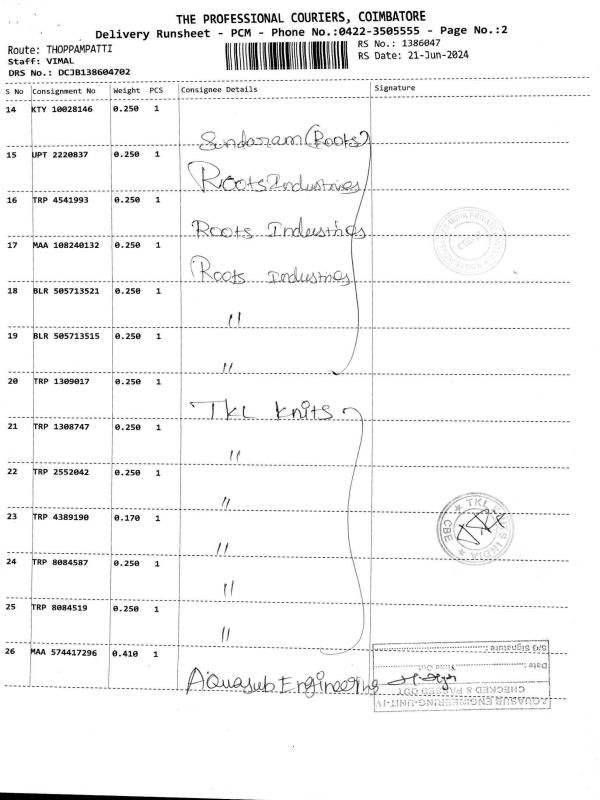 THE PROFESSIONAL COURIERS, COIMBATORE
Delivery Runsheet - PCM - Phone No.:0422-3505555 - Page No.:2
Route: THOPPAMPATTI
RS No.: 1386047
Staff: VIMAL
RS Date: 21-Jun-2024
DRS No.: DCJB138604702
S No Consignment No Weight PCS Consignee Details Signature
14 KTY 10028146 0.250 1
Sundaram (Roots)
15 UPT 2220837 0.250 1
Roots Industries
16 TRP 4541993 0.250 1
Roots Industries
17 MAA 108240132 0.250 1
Roots Industries
18 BLR 505713521 0.250 1
"
19 BLR 505713515 0.250 1
"
20 TRP 1309017 0.250 1
TKL Knits
21 TRP 1308747 0.250 1
"
22 TRP 2552042 0.250 1
"
23 TRP 4389190 0.170 1
"
TKL INDIA CBE
24 TRP 8084587 0.250 1
"
25 TRP 8084519 0.250 1
"
26 MAA 574417296 0.410 1
Aquasub Engineering
AQUASUB ENGINEERING-UNIT-IV
CHECKED & PASSED OUT
Date
S/G Signature